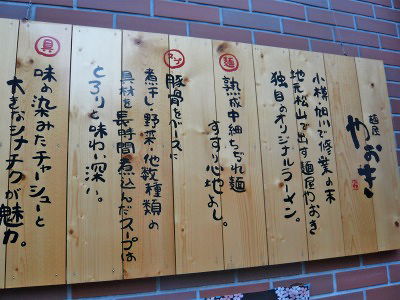 麺屋
やおき
小樽・旭川で修業の末
地元松山で出す麺屋やおき
独自のオリジナルラーメン。
麺
熟成中細ちぢれ麺
すすり心地よし。
スープ
豚骨をベースに
煮干し・野菜・他数種類の
具材を長時間煮込んだスープは
とろりと味わい深い。
具
味の染みたチャーシューと
大きなシナチクが魅力。